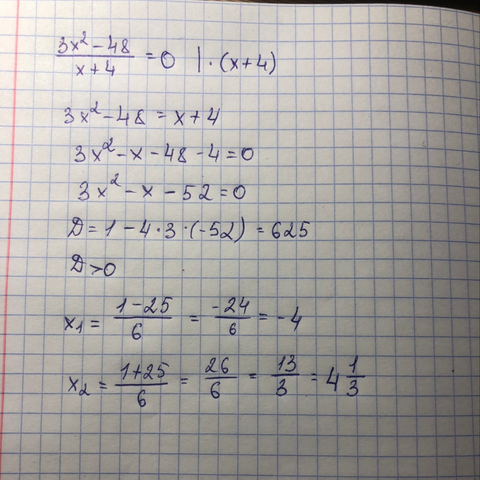 (3x² - 48)/(x + 4) = 0 | · (x + 4)
3x² - 48 = x + 4
3x² - x - 48 - 4 = 0
3x² - x - 52 = 0
D = 1 - 4 · 3 · (-52) = 625
D > 0
x₁ = (1 - 25)/6 = -24/6 = -4
x₂ = (1 + 25)/6 = 26/6 = 13/3 = 4 1/3